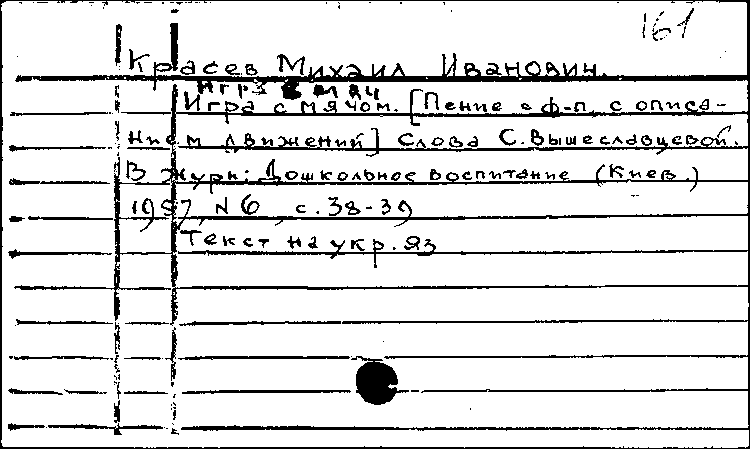 161
Красев Михаил Иванович.
Игра в мяч
Игра с мячом. [Пение с ф-п. с описа-
нием движений] Слова С. Вышеславцевой.
В журн: Дошкольное воспитание (Киев.)
1957, N 6, с. 38-39
Текст на укр. яз